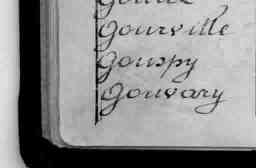 Gourville
Gouspy
Gouvary